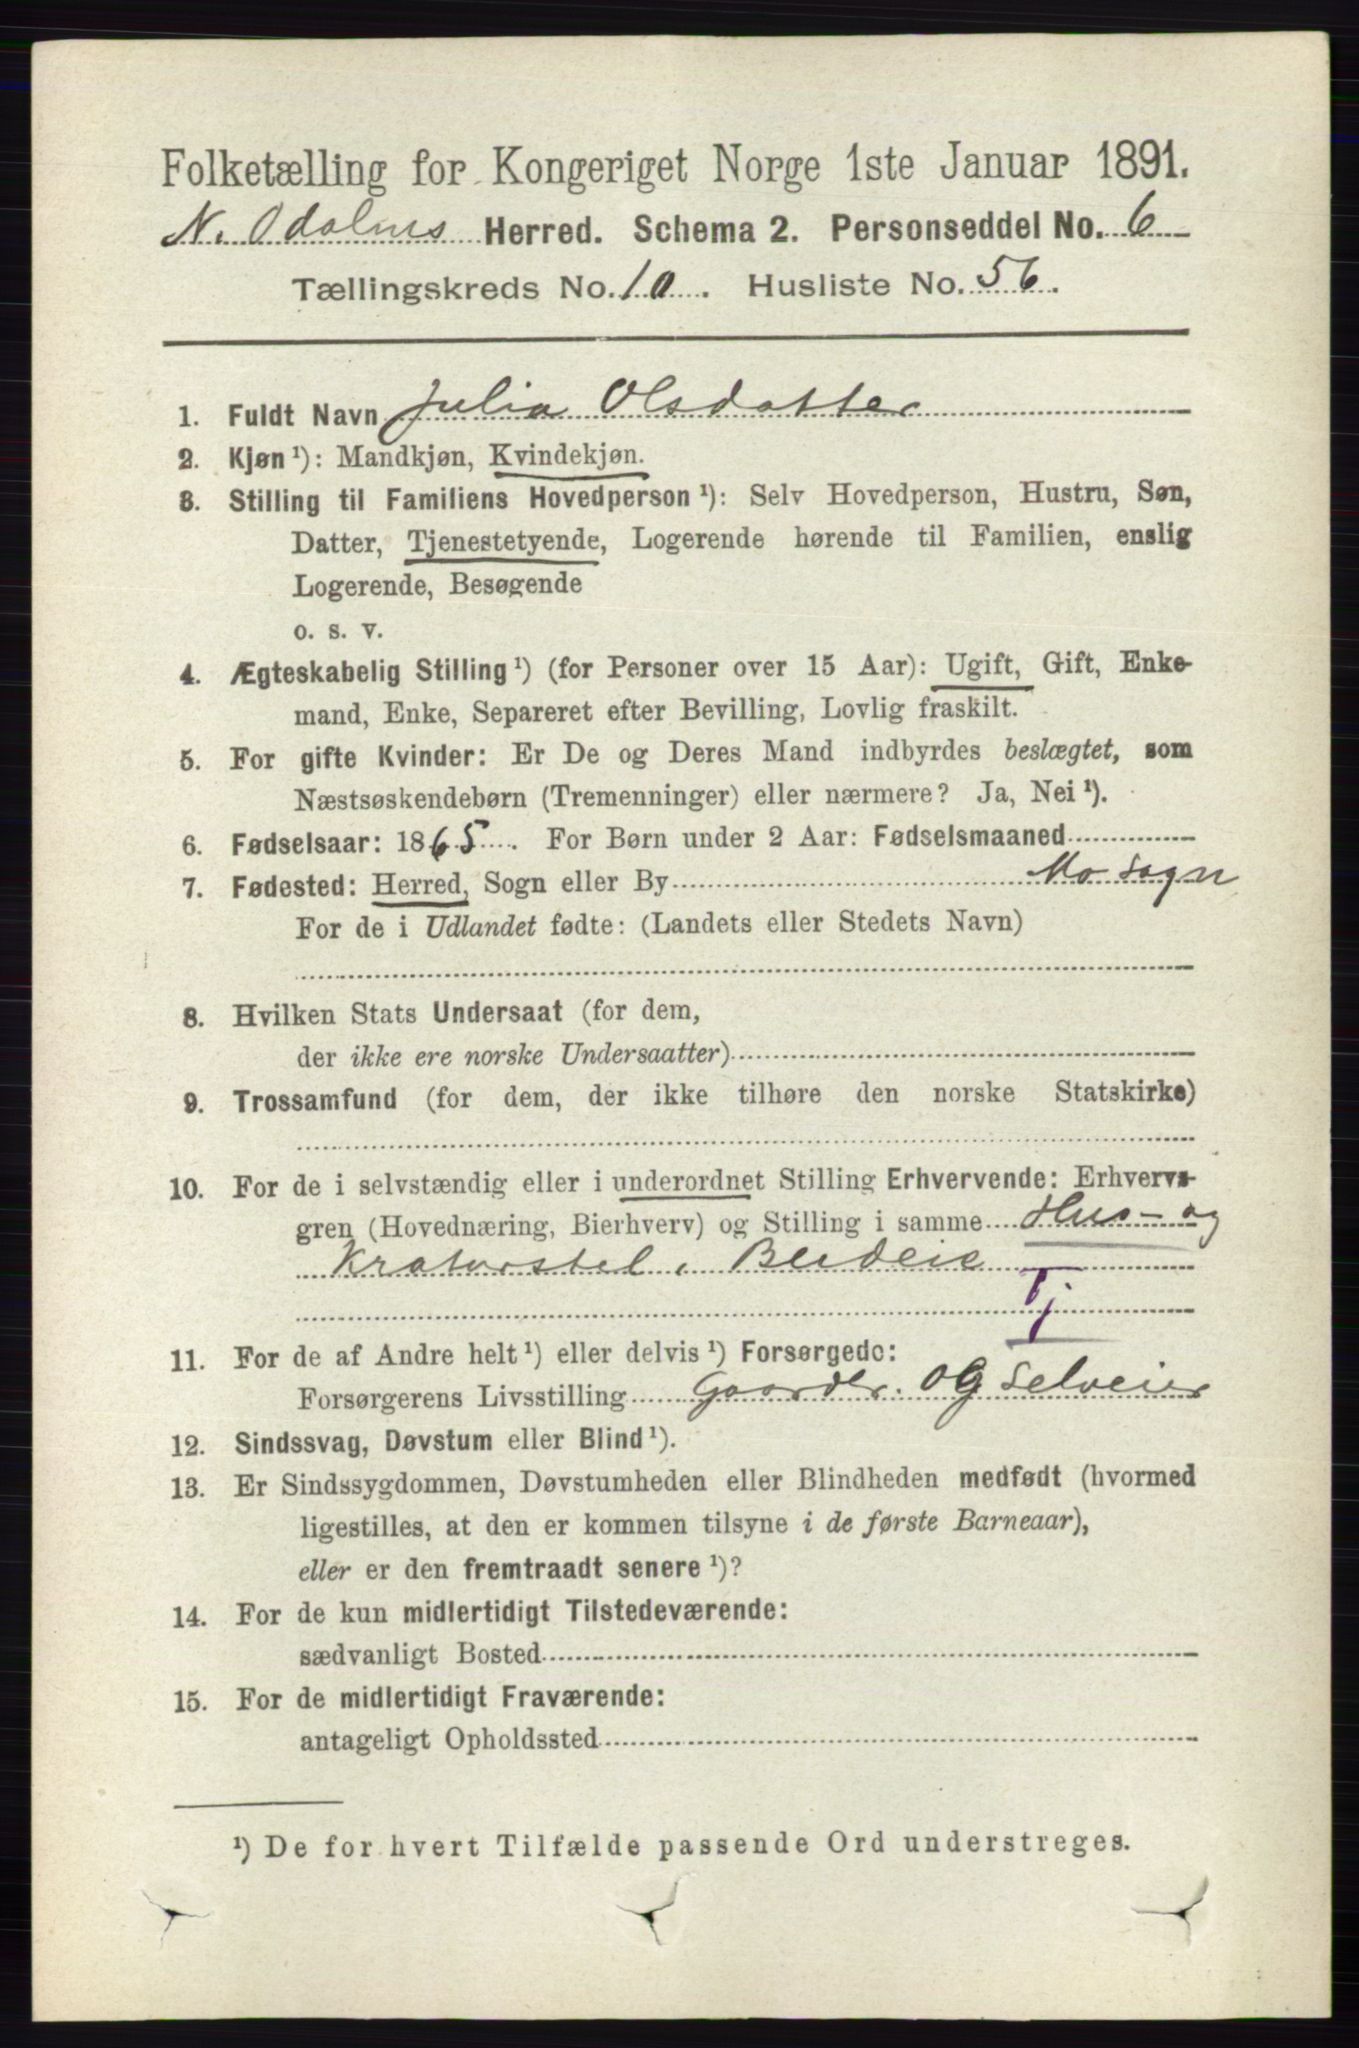 Folketælling for Kongeriget Norge 1ste Januar 1891.
N. Odalens Herred. Schema 2. Personseddel No. 6
Tællingskreds No. 10. Husliste No. 56.
1. Fuldt Navn Julia Olsdatter
2. Kjøn ¹): Mandkjøn, Kvindekjøn.
3. Stilling til Familiens Hovedperson ¹): Selv Hovedperson, Hustru, Søn,
Datter, Tjenestetyende, Logerende hørende til Familien, enslig
Logerende, Besøgende
o. s. v.
4. Ægteskabelig Stilling ¹) (for Personer over 15 Aar): Ugift, Gift, Enke-
mand, Enke, Separeret efter Bevilling, Lovlig fraskilt.
5. For gifte Kvinder: Er De og Deres Mand indbyrdes beslægtet, som
Næstsøskendebørn (Tremenninger) eller nærmere? Ja, Nei ¹).
6. Fødselsaar: 1865. For Børn under 2 Aar: Fødselsmaaned
7. Fødested: Herred, Sogn eller By Mo Sogn
For de i Udlandet fødte: (Landets eller Stedets Navn)
8. Hvilken Stats Undersaat (for dem,
der ikke ere norske Undersaatter)
9. Trossamfund (for dem, der ikke tilhøre den norske Statskirke)
10. For de i selvstændig eller i underordnet Stilling Erhvervende: Erhvervs-
gren (Hovednæring, Bierhverv) og Stilling i samme Hus- og
Kraturstel, Budeie
Tj
11. For de af Andre helt ¹) eller delvis ¹) Forsørgede:
Forsørgerens Livsstilling Gaardbr. OG Selveier
12. Sindssvag, Døvstum eller Blind ¹).
13. Er Sindssygdommen, Døvstumheden eller Blindheden medfødt (hvormed
ligestilles, at den er kommen tilsyne i de første Barneaar),
eller er den fremtraadt senere ¹)?
14. For de kun midlertidigt Tilstedeværende:
sædvanligt Bosted
15. For de midlertidigt Fraværende:
antageligt Opholdssted
¹) De for hvert Tilfælde passende Ord understreges.